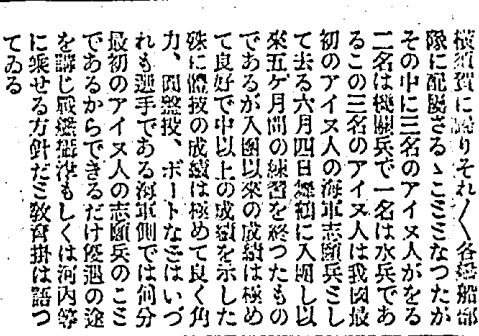 横須賀に歸りそれ〱各艦船部
隊に配屬さるゝことゝなつたが
その中に三名のアイヌ人がをる
二名は機關兵で一名は水兵であ
るこの三名のアイヌ人は我國最
初のアイヌ人の海軍志願兵とし
て去る六月四日海兵團に入團し以
來五ケ月間の練習を終つたもの
であるが入團以來の成績は極め
て良好で中以上の成績を示した
殊に體技の成績は極めて良く角
力、圓盤投、ボートなどはいづ
れも選手である海軍側では何分
最初のアイヌ人の志願兵のこと
であるからできるだけ優遇の途
を講じ戰艦攝津もしくは河内等
に乘せる方針だと敎育掛は語つ
てゐる